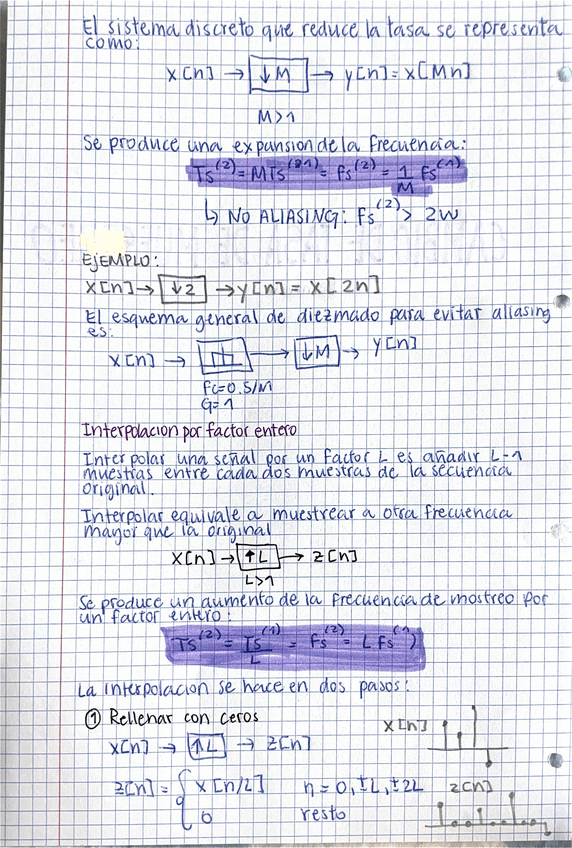 El sistema discreto que reduce la tasa se representa
como:
x[n] → ↓M → y[n] = x[Mn]
M>1
Se produce una expansion de la frecuencia:
Ts⁽²⁾ = MTs⁽¹⁾ = fs⁽²⁾ = 1/M fs⁽¹⁾
↳ NO ALIASING: fs⁽²⁾ > 2w
EJEMPLO:
x[n] → ↓2 → y[n] = x[2n]
El esquema general de diezmado para evitar aliasing
es:
x[n] → → ↓M → y[n]
Fc=0.5/M
G=1
Interpolacion por factor entero
Interpolar una señal por un factor L es añadir L-1
muestras entre cada dos muestras de la secuencia
original.
Interpolar equivale a muestrear a otra frecuencia
mayor que la original
x[n] → ↑L → z[n]
L>1
Se produce un aumento de la frecuencia de mostreo por
un factor entero:
Ts⁽²⁾ = Ts⁽¹⁾/L = fs⁽²⁾ = L fs⁽¹⁾
La interpolacion se hace en dos pasos:
① Rellenar con ceros
x[n]
x[n] → ↑L → z[n]
z[n] = { x[n/L] n = 0, ±L, ±2L
z[n]
0 resto